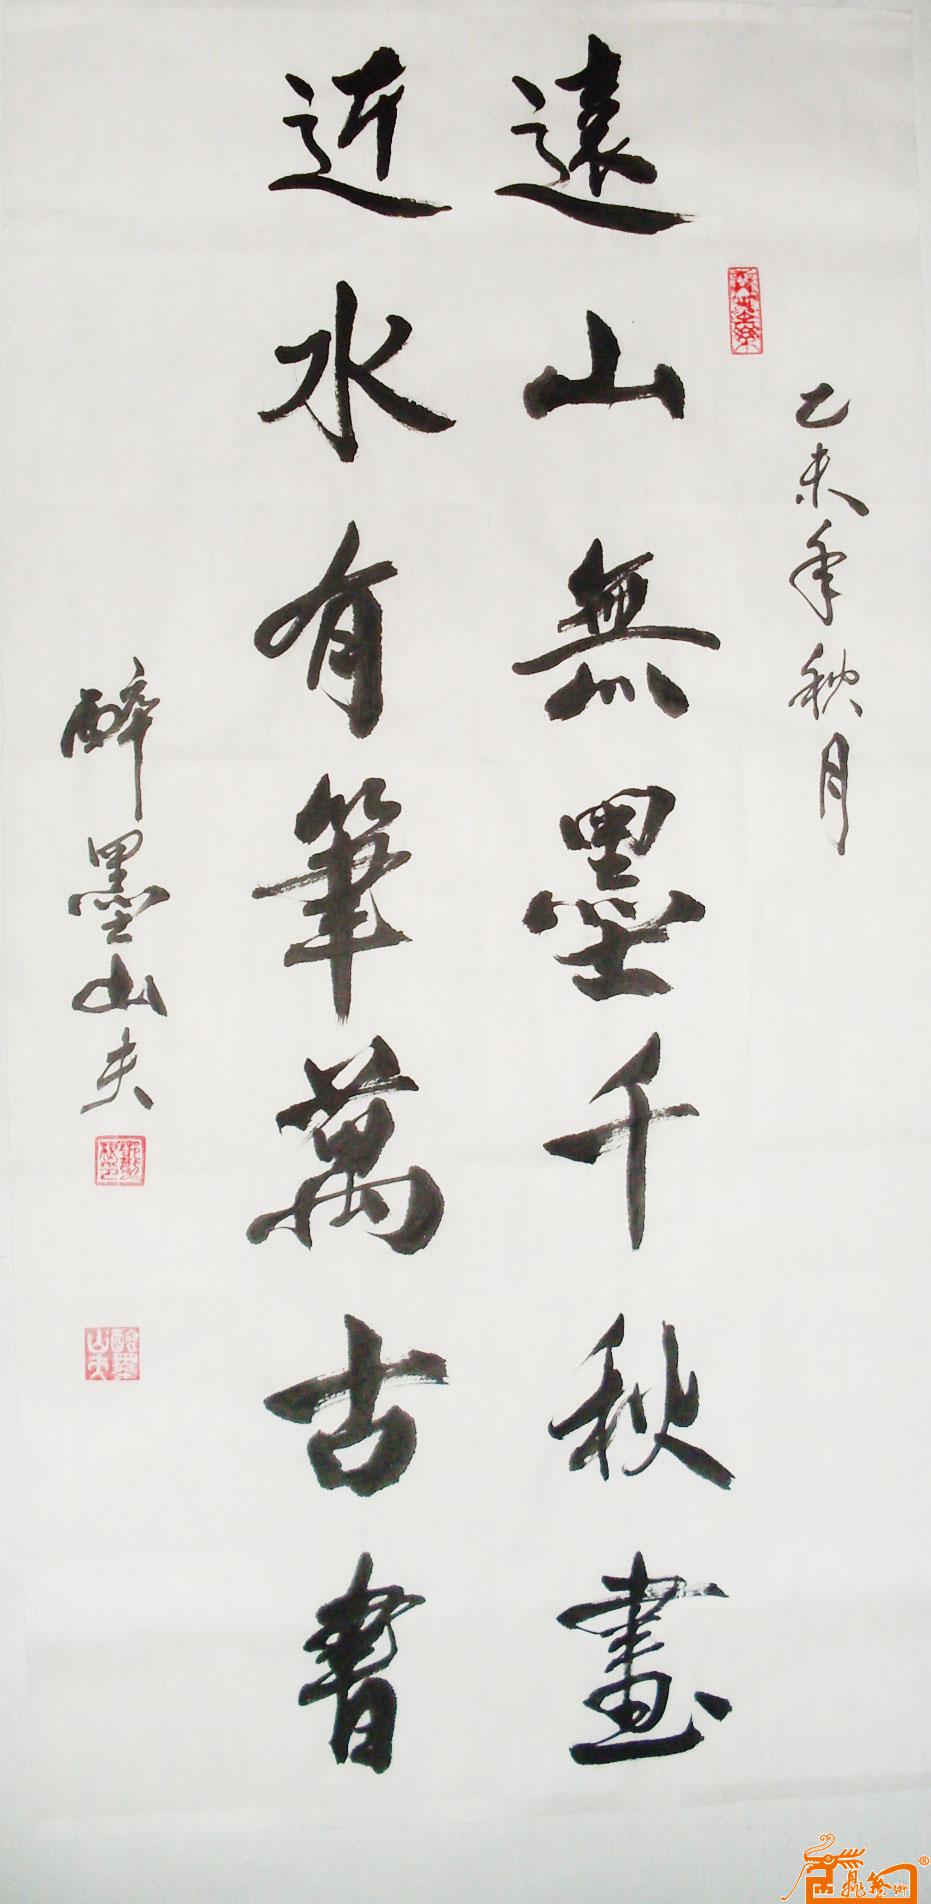 乙未年秋月
遠山無墨千秋畫
近水有筆萬古書
醉墨山夫
醉墨山夫